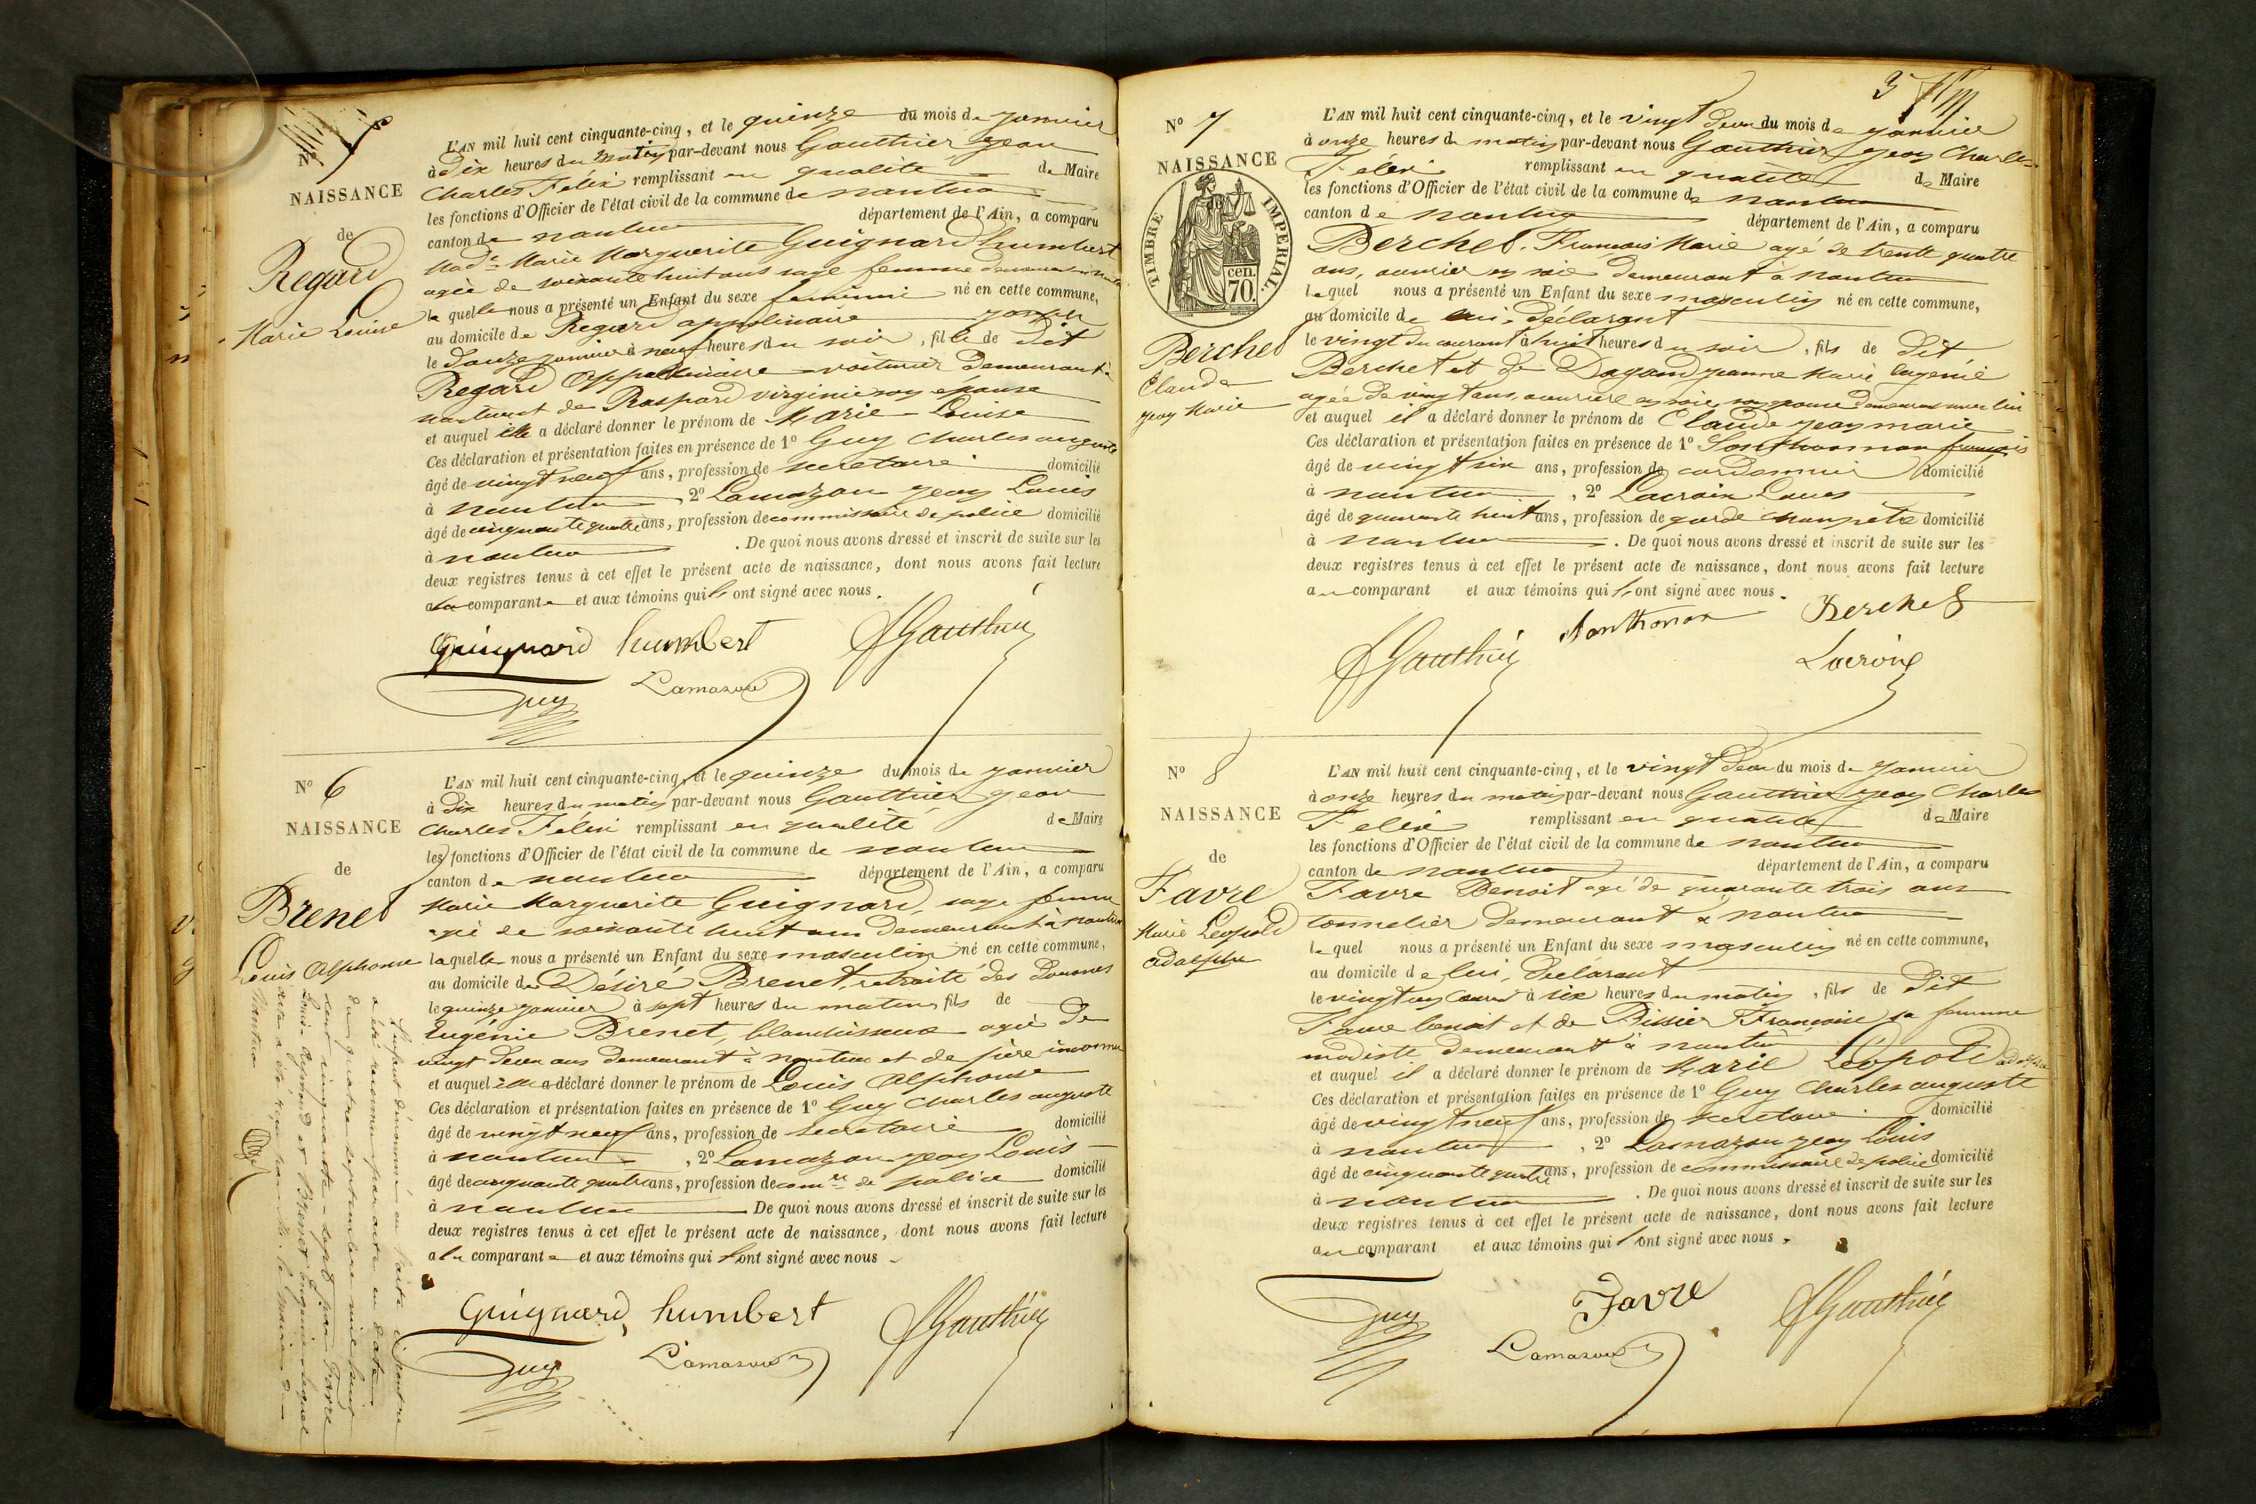 Nº 5
NAISSANCE
de
Regard
Marie Louise
L'AN mil huit cent cinquante-cinq, et le quinze du mois de janvier
à dix heures du matin par-devant nous Gauthier Jean
Charles Félix remplissant en qualité de Maire
les fonctions d'Officier de l'état civil de la commune de nantua
canton de nantua département de l'Ain, a comparu
Made Marie Marguerite Guignard humbert
agée de soixante huit ans sage femme demeurant à
laquelle nous a présenté un Enfant du sexe feminin né en cette commune,
au domicile de Regard appolinaire
le douze janvier à neuf heures du soir, fille de dit
Regard Appollinaire voiturier demeurant à
nantua et de Raspard virginie son épouse
et auquel elle a déclaré donner le prénom de Marie Louise
Ces déclaration et présentation faites en présence de 1º Guy Charles auguste
âgé de vingt neuf ans, profession de secretaire domicilié
à nantua, 2º Lamazou jean Louis
âgé de cinquante quatre ans, profession de commissaire de police domicilié
à nantua. De quoi nous avons dressé et inscrit de suite sur les
deux registres tenus à cet effet le présent acte de naissance, dont nous avons fait lecture
a la comparante et aux témoins qui ont signé avec nous.
Guignard humbert Gauthier
Guy Lamazou
Nº 6
NAISSANCE
de
Brenet
Louis Alphonse
L'AN mil huit cent cinquante-cinq, et le quinze du mois de janvier
à dix heures du matin par-devant nous Gauthier jean
Charles Félix remplissant en qualité de Maire
les fonctions d'Officier de l'état civil de la commune de nantua
canton de nantua département de l'Ain, a comparu
Marie Marguerite Guignard, sage femme
agée de soixante huit ans demeurant à nantua
laquelle nous a présenté un Enfant du sexe masculin né en cette commune,
au domicile de Désiré Brenet, retraité des douanes
le quinze janvier à sept heures du matin fils de
Eugénie Brenet, blanchisseuse agée de
vingt deux ans demeurant à nantua et de père inconnu
et auquel elle a déclaré donner le prénom de Louis Alphonse
Ces déclaration et présentation faites en présence de 1º Guy Charles auguste
âgé de vingt neuf ans, profession de secretaire domicilié
à nantua, 2º Lamazou jean Louis
âgé de cinquante quatre ans, profession de comre de police domicilié
à nantua De quoi nous avons dressé et inscrit de suite sur les
deux registres tenus à cet effet le présent acte de naissance, dont nous avons fait lecture
a la comparante et aux témoins qui ont signé avec nous
Guignard, humbert Gauthier
Guy Lamazou
L'enfant dénommé en l'acte ci-contre
a été reconnu par acte en date
du quatre septembre mil huit
cent cinquante-sept par Favre
Louis Alphonse et Brenet Eugénie lequel
acte a été reçu par Mr. le maire de
Nantua
3
Nº 7
NAISSANCE
TIMBRE IMPERIAL.
cen.
70.
Berchet
Claude
jean Marie
L'AN mil huit cent cinquante-cinq, et le vingt deux du mois de janvier
à onze heures du matin par-devant nous Gauthier jean Charles
Félix remplissant en qualité de Maire
les fonctions d'Officier de l'état civil de la commune de nantua
canton de nantua département de l'Ain, a comparu
Berchet François Marie agé de trente quatre
ans, ouvrier en soie demeurant à nantua
lequel nous a présenté un Enfant du sexe masculin né en cette commune,
au domicile de lui déclarant
le vingt du courant à huit heures du soir, fils de dit
Berchet et de Dagand jeanne Marie Eugénie
agée de vingt ans, ouvrière en soie, son épouse demeurant avec lui
et auquel il a déclaré donner le prénom de Claude jean marie
Ces déclaration et présentation faites en présence de 1º Sonthonnax françois
âgé de vingt six ans, profession de cordonnier domicilié
à nantua, 2º Lacroix Louis
âgé de quarante huit ans, profession de garde champêtre domicilié
à nantua. De quoi nous avons dressé et inscrit de suite sur les
deux registres tenus à cet effet le présent acte de naissance, dont nous avons fait lecture
au comparant et aux témoins qui ont signé avec nous.
Gauthier Sonthonax Berchet
Lacroix
Nº 8
NAISSANCE
de
Favre
Marie Léopold
adolphe
L'AN mil huit cent cinquante-cinq, et le vingt deux du mois de janvier
à onze heures du matin par-devant nous Gauthier jean Charles
Félix remplissant en qualité de Maire
les fonctions d'Officier de l'état civil de la commune de nantua
canton de nantua département de l'Ain, a comparu
Favre Benoit agé de quarante trois ans
tonnelier demeurant à nantua
lequel nous a présenté un Enfant du sexe masculin né en cette commune,
au domicile de lui, déclarant
le vingt un courant à six heures du matin, fils de dit
Favre benoit et de Bissier Françoise sa femme
modiste demeurant à nantua
et auquel il a déclaré donner le prénom de Marie Léopold adolphe
Ces déclaration et présentation faites en présence de 1º Guy Charles auguste
âgé de vingt neuf ans, profession de secretaire domicilié
à nantua, 2º Lamazou jean Louis
âgé de cinquante quatre ans, profession de commissaire de police domicilié
à nantua. De quoi nous avons dressé et inscrit de suite sur les
deux registres tenus à cet effet le présent acte de naissance, dont nous avons fait lecture
au comparant et aux témoins qui ont signé avec nous.
Guy Favre Gauthier
Lamazou